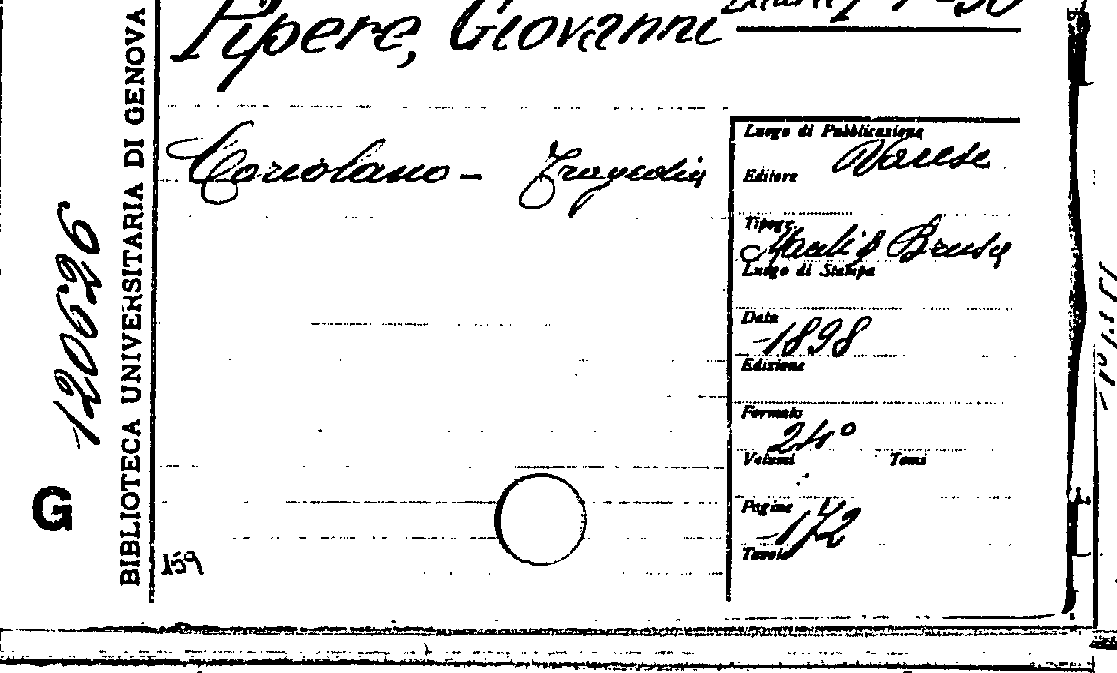 Pipere, Giovanni
Coriolano – Tragedia
Luogo di Pubblicazione
Varese
Editore
Tipogr.
Macchi & Brusa
Luogo di Stampa
Data
1898
Edizione
Formato
24°
Volumi Tomi
Pagine
172
Tavole
159
BIBLIOTECA UNIVERSITARIA DI GENOVA
120626
G